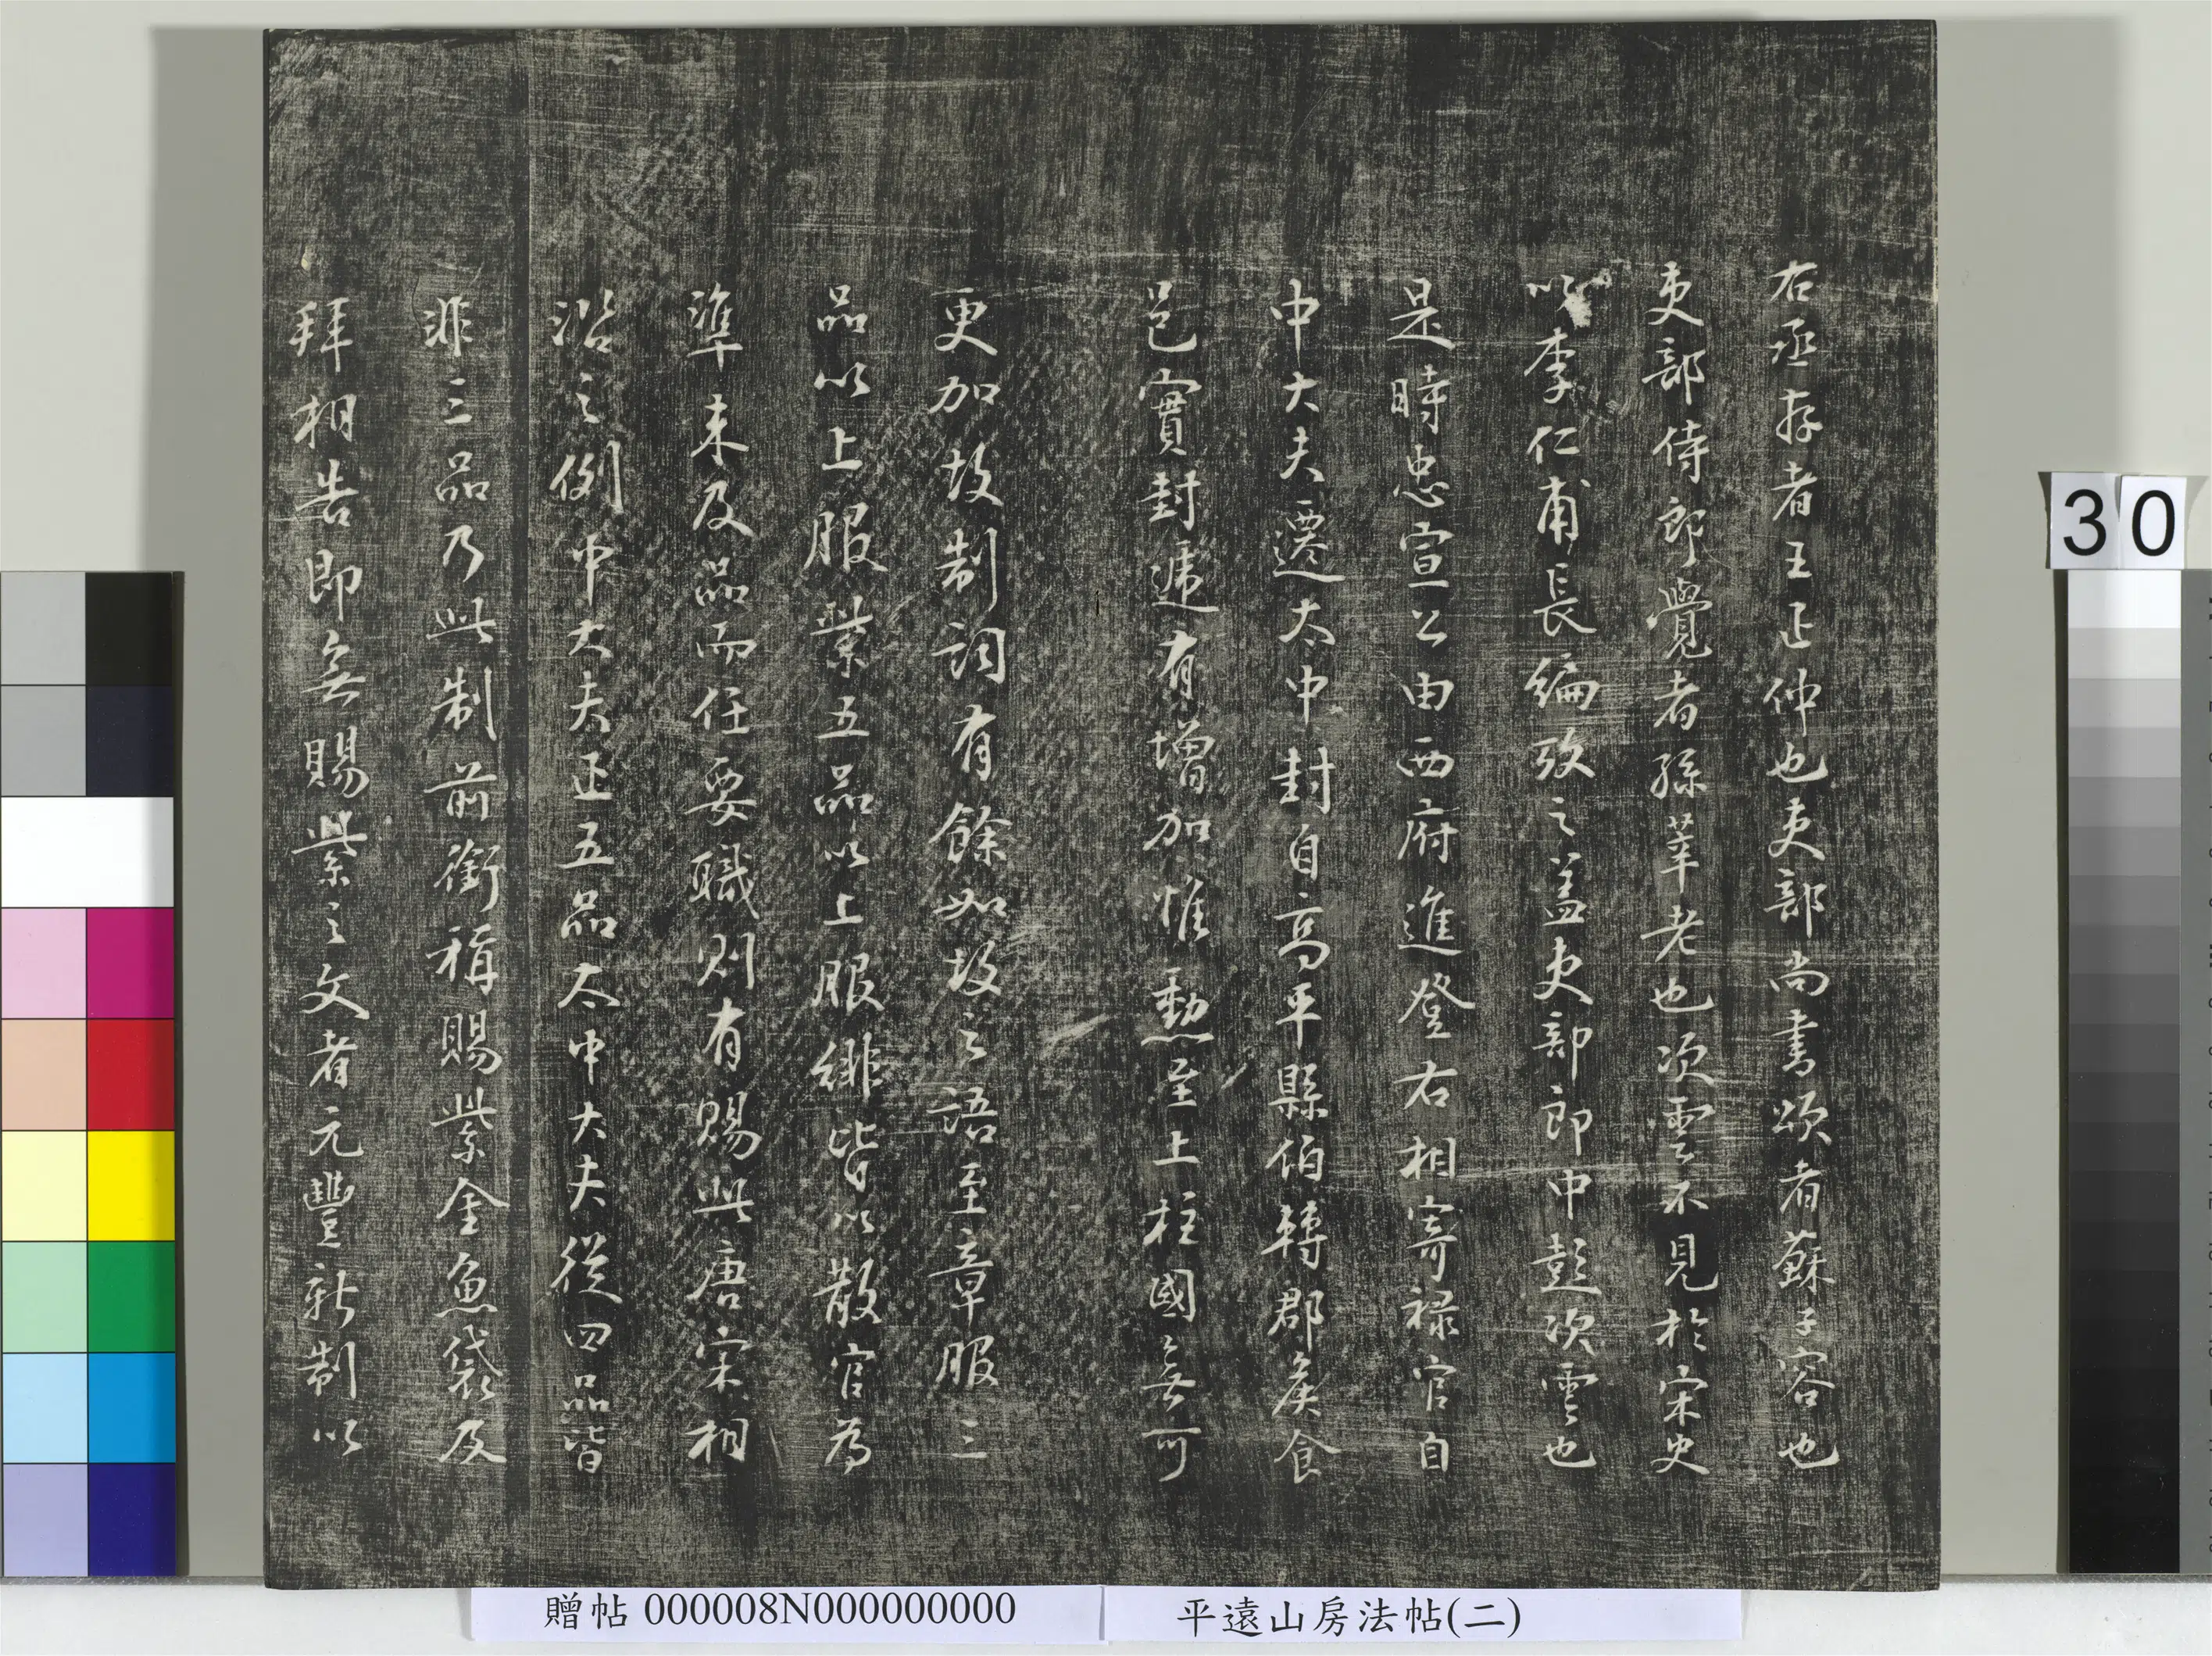 右丞存者王正仲也吏部尚書頌者蘇子容也
吏部侍郎覺者孫莘老也次雲不見於宋史
以李仁甫長編攷之盖吏部郎中彭次雲也
是時忠宣公由西府進登右相寄禄官自
中大夫遷太中封自高平縣伯轉郡矦食
邑實封遞有增加惟勳至上柱國無可
更加故制詞有餘如故之語至章服三
品以上服紫五品以上服緋皆以散官為
準未及品而任要職則有賜此唐宋相
沿之例中大夫正五品太中大夫從四品皆
非三品乃此制前銜稱賜紫金魚袋及
拜相告即無賜紫之文者元豐新制以
30
贈帖 000008N000000000
平遠山房法帖(二)